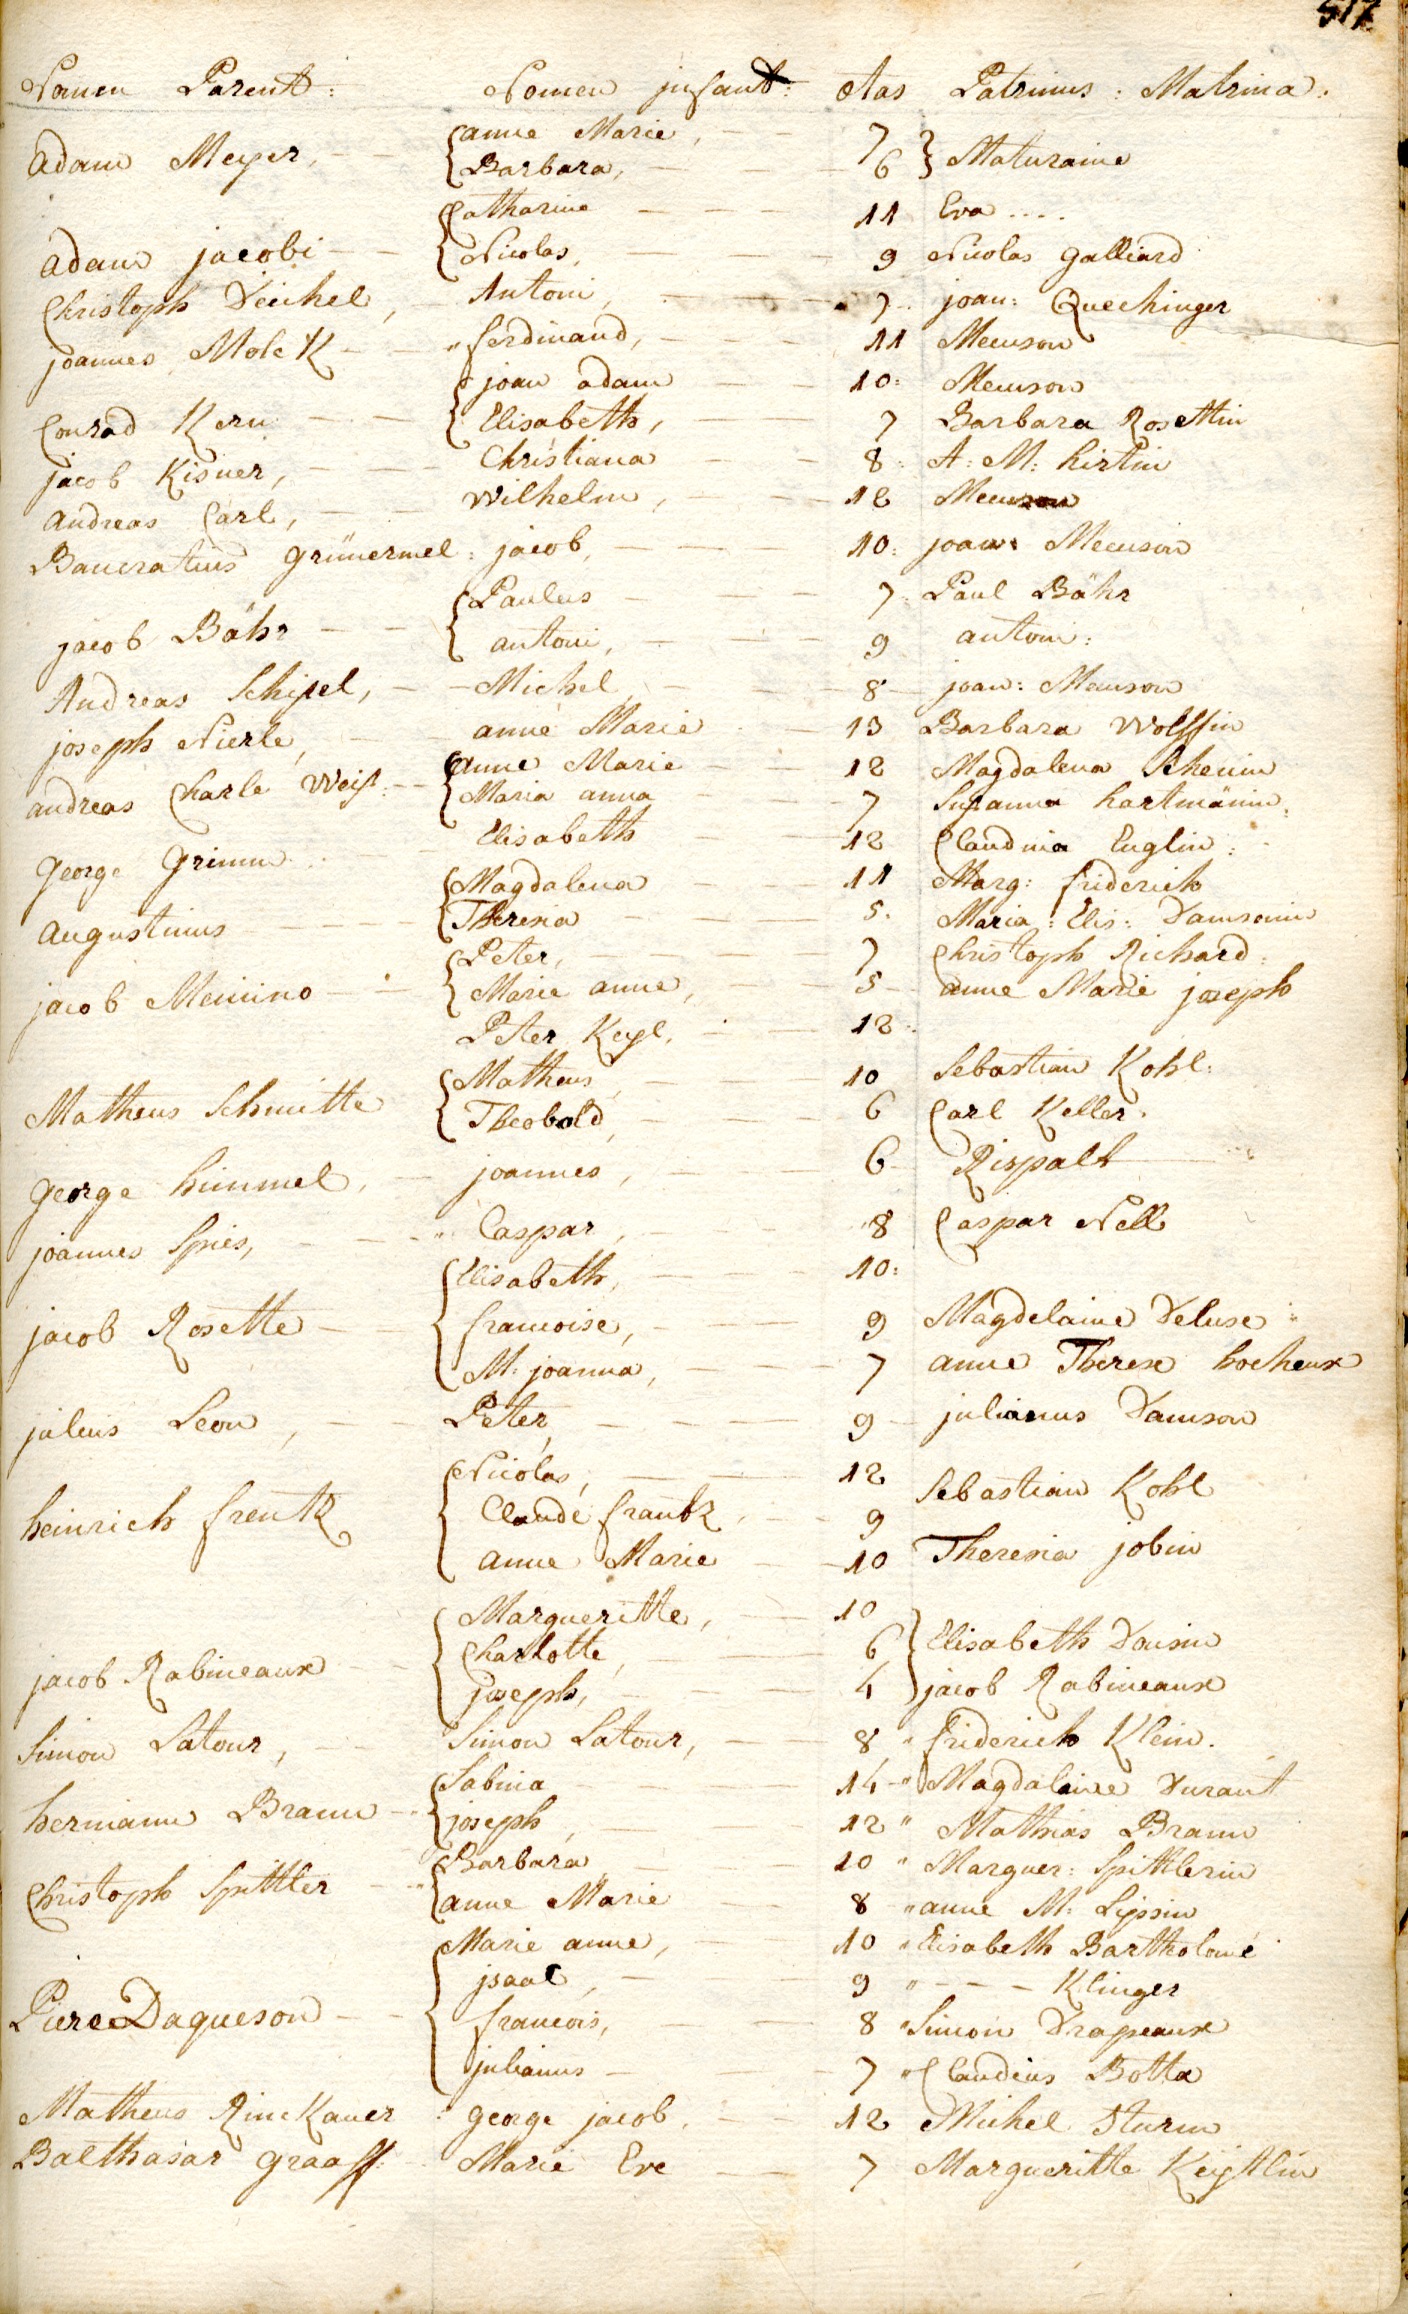 517
Nomen Parent: Nomen infant: Ætas Patrinus : Matrina.
anne Marie, 7
Adam Meyer, Maturaine
Barbara, 6
Catharine 11 Eva ....
Adam jacobi Nicolas, 9 Nicolas Galliard
Christoph Deichel, Antoni, 7 joan: Quechinger
joannes Molek ferdinand, 11 Meuson
joan adam 10: Meuson
Conrad Kern Elisabeth, 7 Barbara Rosettin
jacob Kisner, Christiana 8: A: M: hirtin
Andreas Carl, Wilhelm, 12 Meuson
Bancratius Grünermel: jacob, 10: joan: Meuson
Paulus 7 Paul Bähr
jacob Bähr antoni, 9 antoni:
Andreas Schisel, Michel, 8 joan: Meuson
joseph Nierle, anne Marie 13 Barbara Wolffin
anne Marie 12 Magdalena Rhenin
andreas Charle Weist: Maria anna 7 Susanna hartmänin
George Grimm Elisabeth 12 Claudina Euglin:
Magdalena 11 Marg: friderich
Augustinus Theresia 5. Maria: Elis: Damsonin
Peter, 7 Christoph Richard:
jacob Meinino Marie anne, 5 anne Marie joseph
Peter Keyl. 12
Matheus, 10 Sebastian Kohl:
Matheus Schmitte Theobald, 6 Carl Keller.
George himmel, joannes, 6 Rispalt
joannes Spies, Caspar, 8 Caspar Nell
Elisabeth, 10:
jacob Rosette francoise, 9 Magdelaine Deluse
M: joanna, 7 anne Therese hocheux
julius Leon, Peter, 9 julianus Damson
Nicolas, 12 Sebastian Kohl
heinrich frentz Claude frantz, 9
anne Marie 10 Theresia jobin
Margueritte, 10
jacob Rabineaux Charlotte, 6 Elisabeth Dausin
joseph, 4 jacob Rabineaux
Simon Latour, Simon Latour, 8 friderich Klein.
Sabina 14 Magdalaine Durant
hermann Braun joseph, 12 Mathias Braun
Barbara, 10 Marguer: Spittlerin
Christoph Spittler anne Marie 8 anne M: Lipsin
Marie anne, 10 Elisabeth Bartholomé
jsaac, 9 Klinger
Piere Daqueson francois, 8 Simon Drapeaux
julianus 7 Claudius Botta
Matheus Rinckauer george jacob, 12 Michel Sturm
Balthasar Graaff: Marie Eve 7 Margueritte Keistlin